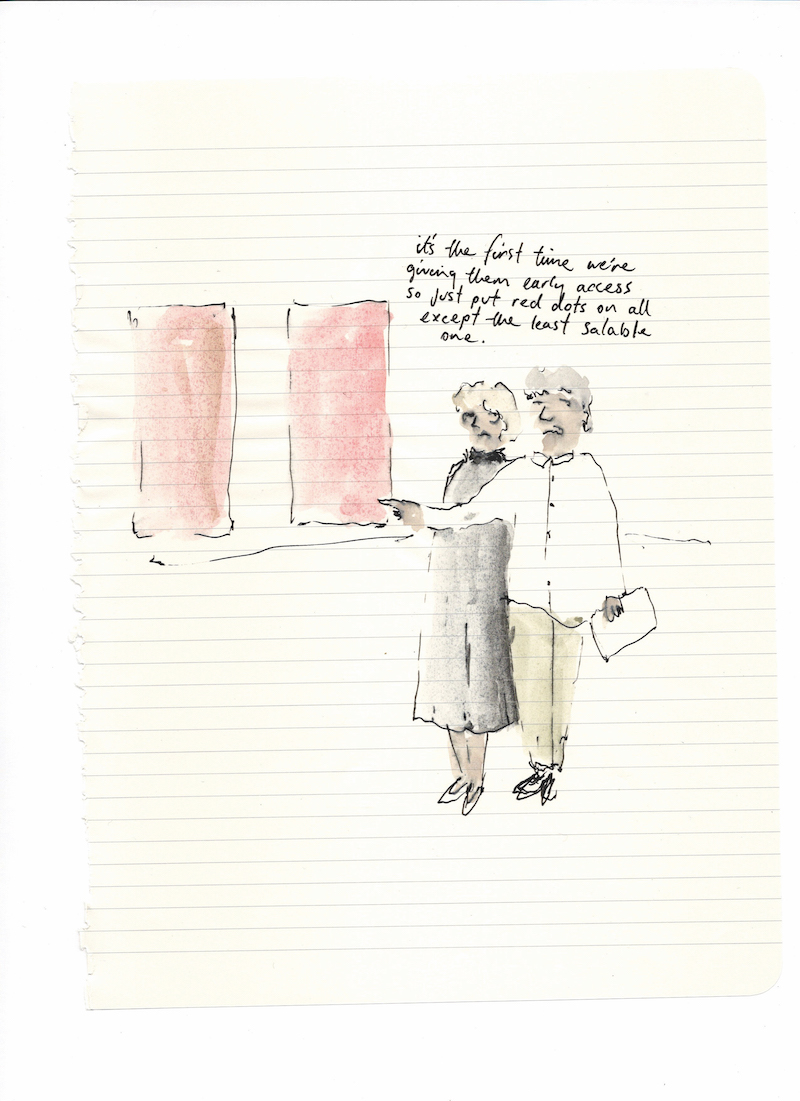 it's the first time we're
giving them early access
so just put red dots on all
except the least salable
one.